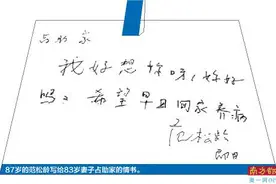 与助家
我好想妳呀！妳好
吗？希望早日回家养病
范松龄
即日
87岁的范松龄写给83岁妻子占助家的情书。
南方都